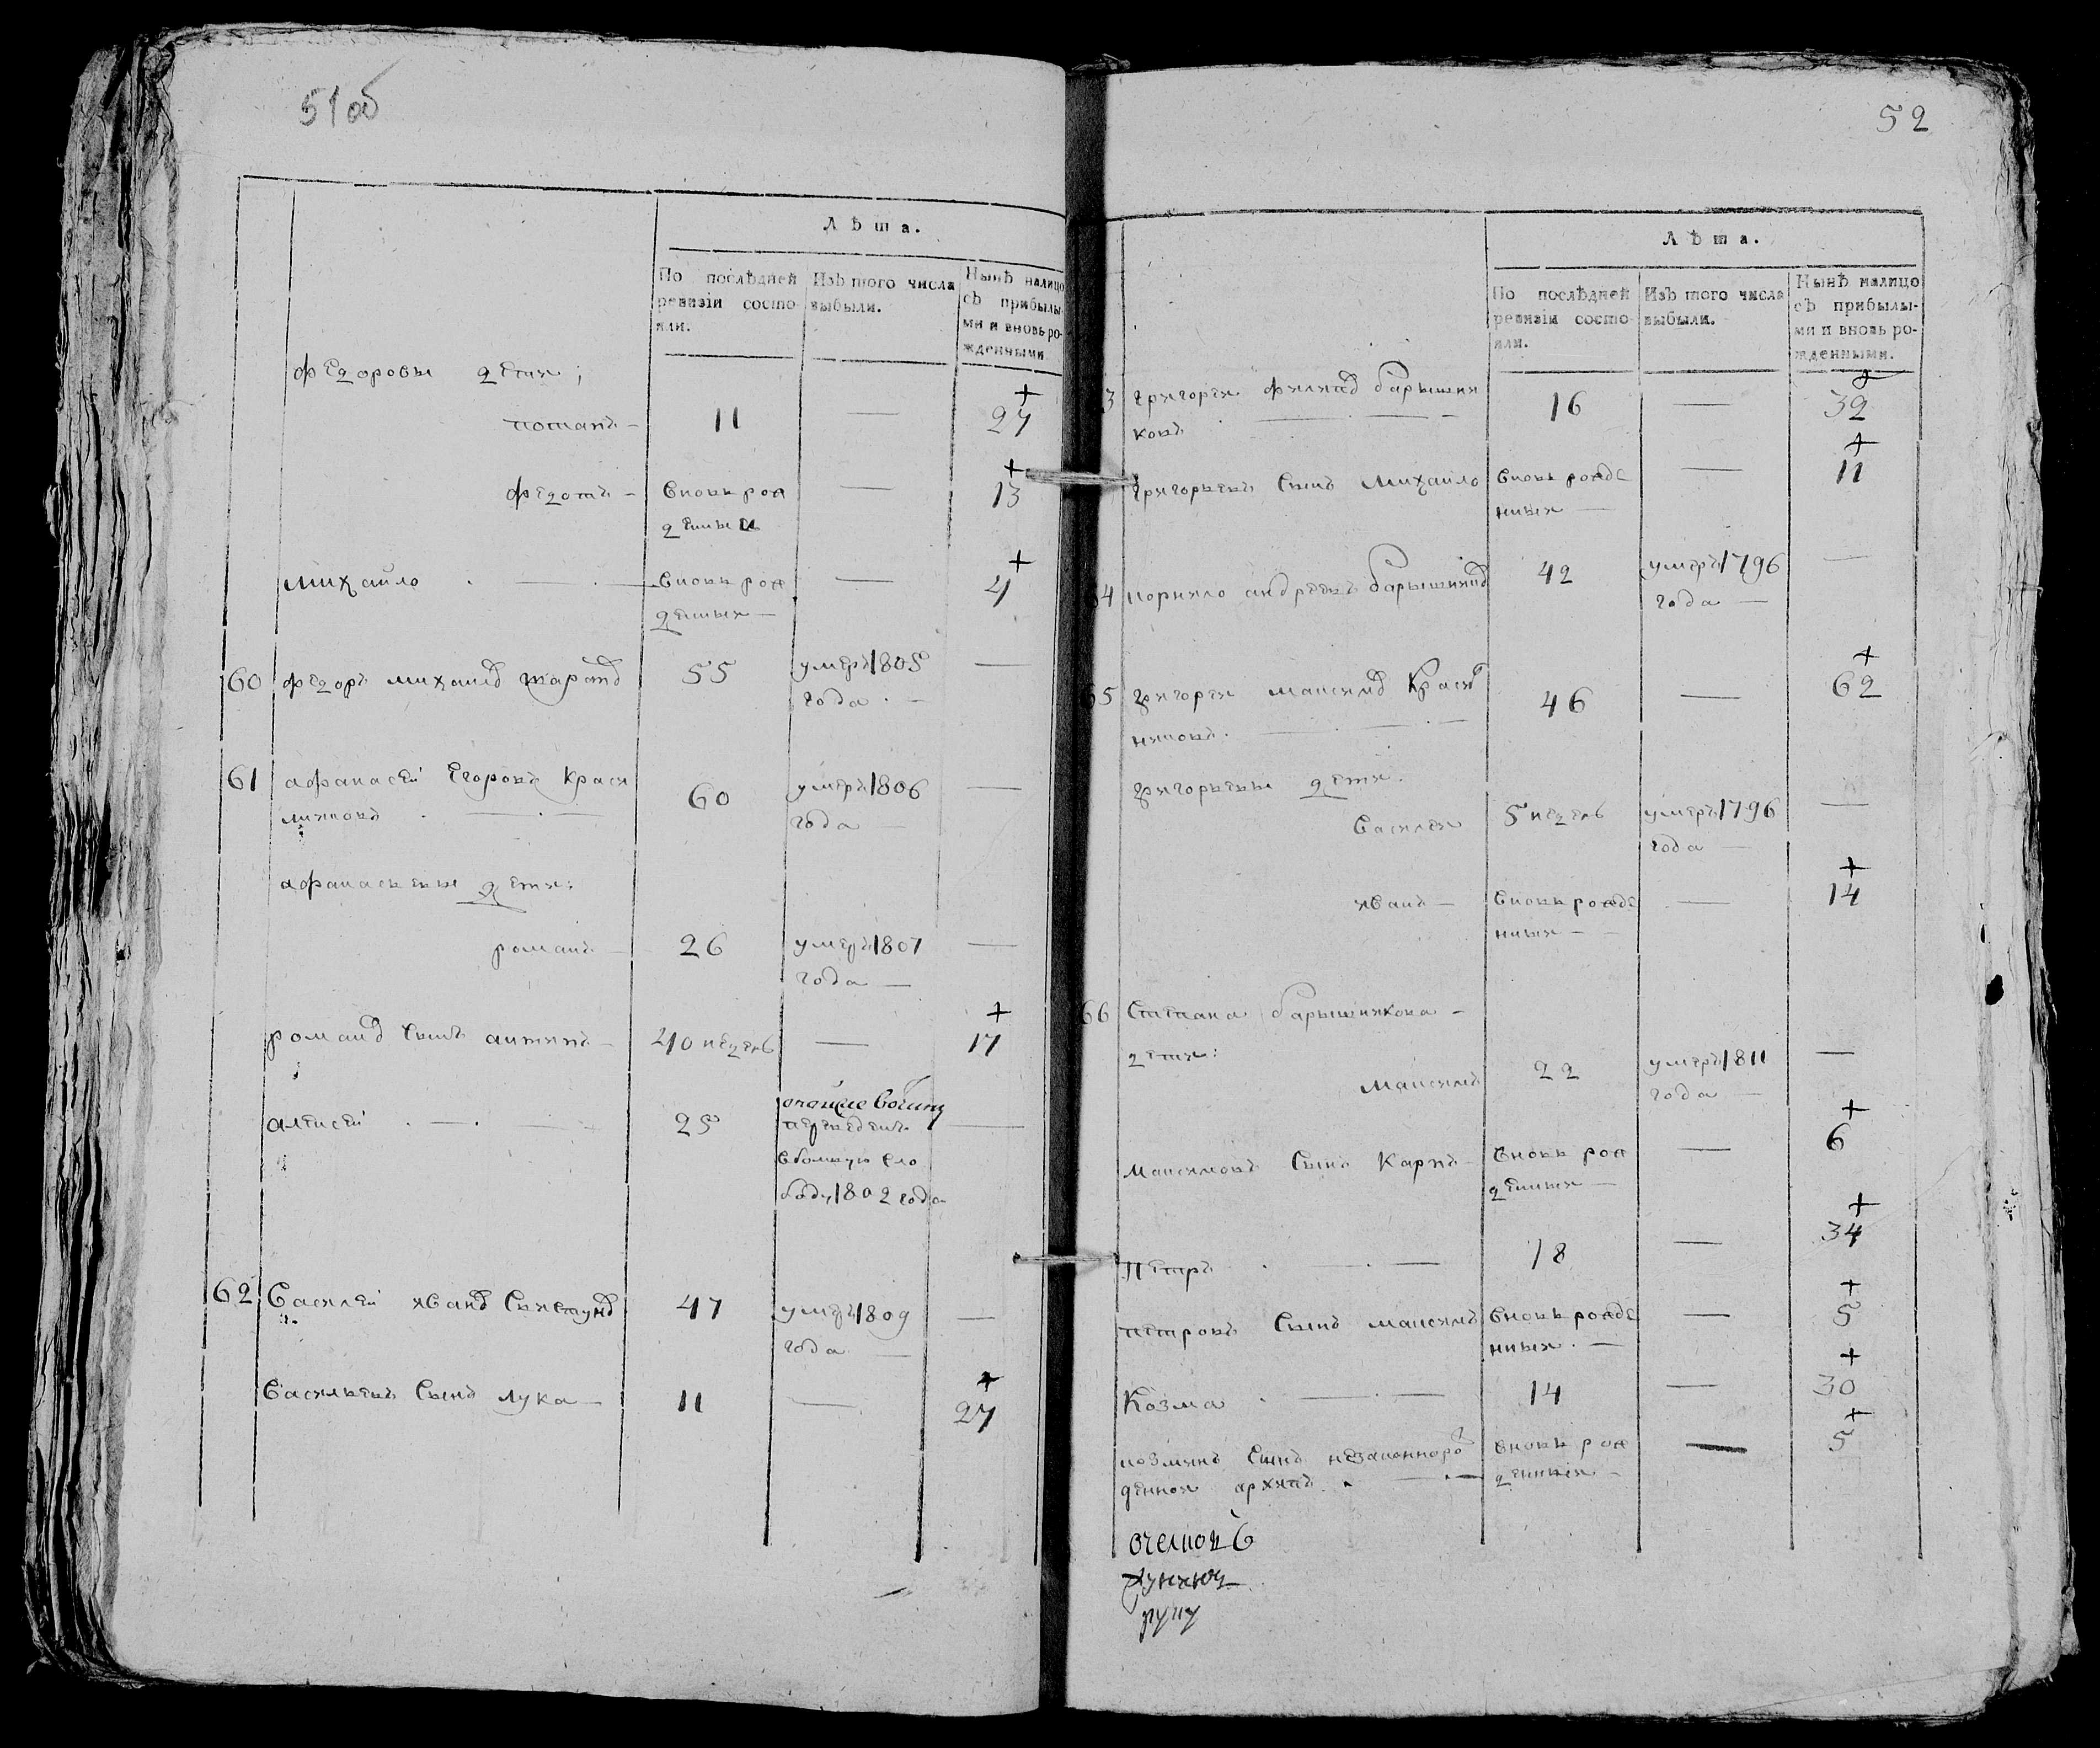 51 об
Лѣта.
По послѣдней ревизіи состояли.
Изъ того числа выбыли.
Нынѣ налицо съ прибылыми и вновь рожденными.
федоровы дети;
потапъ — 11 — + 27
федотъ — вновь рож — + 13
денныи
михайло — вновь рож — + 4
денныи —
60 федоръ михаилов 55 умеръ 1805 —
года —
61 афанасей Егоровъ Краси 60 умеръ 1806 —
лниковъ года —
афанасьевы дети:
романъ — 26 умеръ 1807 —
года —
романов сынъ антипъ — 40 недель — + 17
алексей — 25 —
переведенъ
сло
боду 1802 года
62 Василей Иванов 47 умеръ 1809 —
года —
Васильевъ сынъ лука — 11 — + 27
52
Лѣта.
По послѣдней ревизіи состояли.
Изъ того числа выбыли.
Нынѣ налицо съ прибылыми и вновь рожденными.
3 григореи филипов барышни 16 — + 32
ковъ —
григорьевъ сынъ михайло вновь рожде — + 11
нныи —
64 корнило андреевъ барышников 42 умеръ 1796 —
года —
65 григореи максимов Краси 46 — + 62
никовъ —
григорьевы дети.
Василеи 5 недель умеръ 1796 —
года —
иванъ — вновь рожде — + 14
нныи —
66 степана барышникова —
дети:
максимъ 22 умеръ 1811 —
года —
максимовъ сынъ Карпъ — вновь рож — + 6
денныи —
петръ — 18 — + 34
петровъ сынъ максимъ вновь рожде — + 5
нныи —
Козма — 14 — + 30
козминъ сынъ незаконноро вновь рож — + 5
жденнои архипъ — денныи —
руку